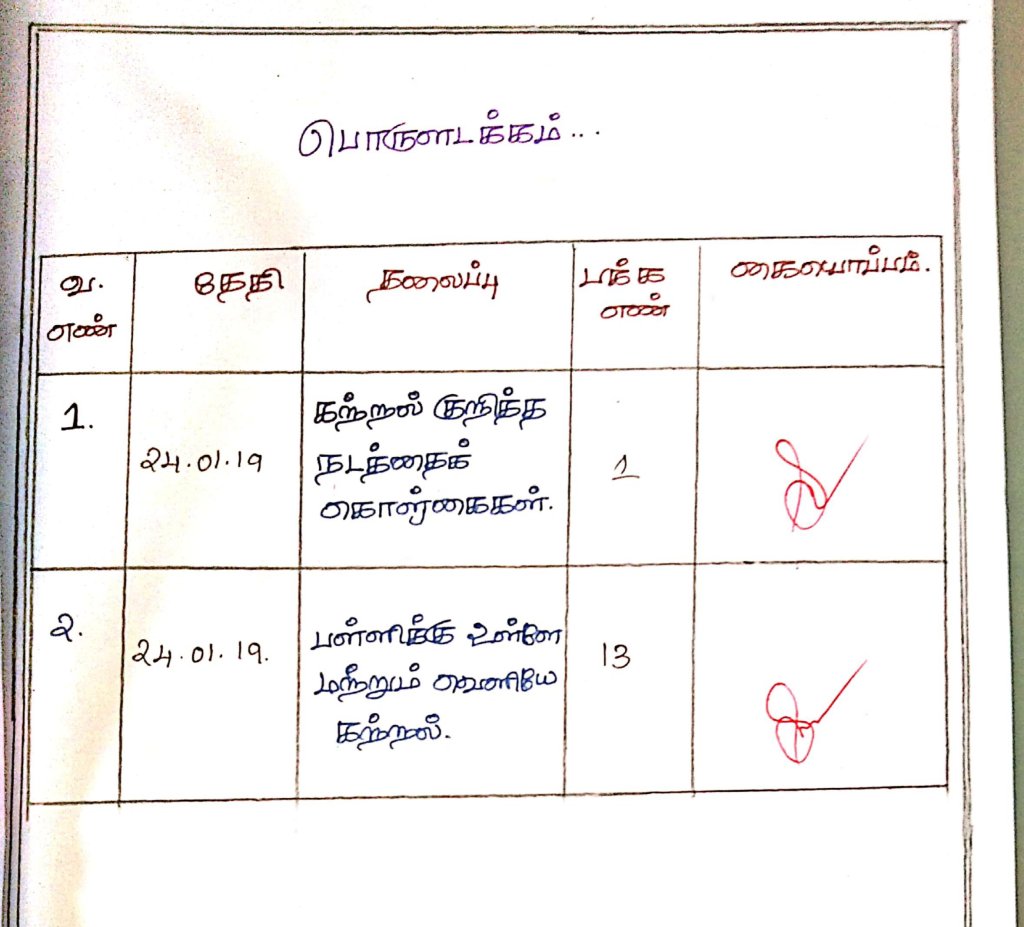 பொருளடக்கம்...
வ. எண் தேதி தலைப்பு பக்க எண் கையொப்பம்.
1. 24.01.19 கற்றல் குறித்த 1
நடத்தைக்
கொள்கைகள்.
2. 24.01.19. பள்ளிக்கு உள்ளே 13
மற்றும் வெளியே
கற்றல்.